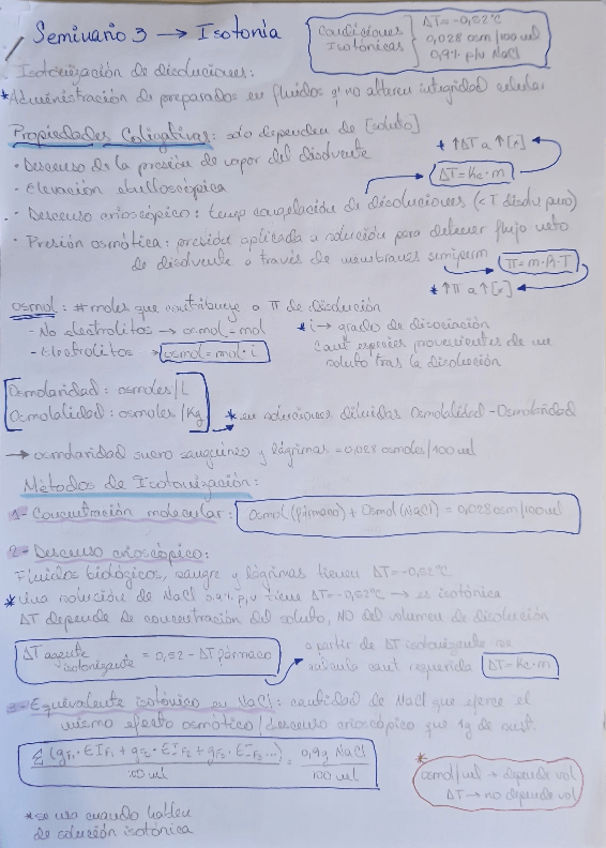 Seminario 3 → Isotonía
Condiciones Isotónicas } ΔT = -0,52°C
0,028 osm/100 ml
0,9% p/v NaCl
Isotonización de disoluciones:
*Administración de preparados en fluidos q' no alteren integridad celular
Propiedades Coligativas: solo dependen de [soluto]
* ↑ΔT a ↑[x]
· Descenso de la presión de vapor del disolvente
· Elevación ebulloscópica
ΔT = Kc · m
· Descenso crioscópico: temp congelación de disoluciones (< T disolv puro)
· Presión osmótica: presión aplicada a solución para detener flujo neto
de disolvente a través de membranas semiperm
π = m · R · T
* ↑π a ↑[x]
osmol: #moles que contribuye a π de disolución
- No electrolitos → osmol = mol
- Electrolitos → osmol = mol · i
* i → grado de disociación
cant especies provenientes de un
soluto tras la disolución
Osmolaridad: osmoles/L
Osmolalidad: osmoles/Kg
* en soluciones diluidas Osmolalidad = Osmolaridad
→ osmolaridad suero sanguíneo y lágrimas = 0,028 osmoles/100 ml
Métodos de Isotonización:
1- Concentración molecular: Osmol (fármaco) + Osmol (NaCl) = 0,028 osm/100 ml
2- Descenso crioscópico:
Fluidos biológicos, sangre y lágrimas tienen ΔT = -0,52°C
*Una solución de NaCl 0,9% p/v tiene ΔT = -0,52°C → es isotónica
ΔT depende de concentración del soluto, NO del volumen de disolución
ΔT agente isotonizante = 0,52 - ΔT fármaco
a partir de ΔT isotonizante se
calcula cant requerida ΔT = Kc · m
3- Equivalente isotónico en NaCl: cantidad de NaCl que ejerce el
mismo efecto osmótico/descenso crioscópico que 1g de sust.
Σ (gF1 · EIF1 + gF2 · EIF2 + gF3 · EIF3 ...) / 100 ml = 0,9g NaCl / 100 ml
*
osmol/ml → depende vol
ΔT → no depende vol
*se usa cuando hablen
de solución isotónica